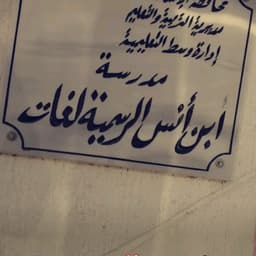 محافظة
مديرية التربية والتعليم
إدارة وسط التعليمية
مدرسة
ابن أنس الرسمية لغات